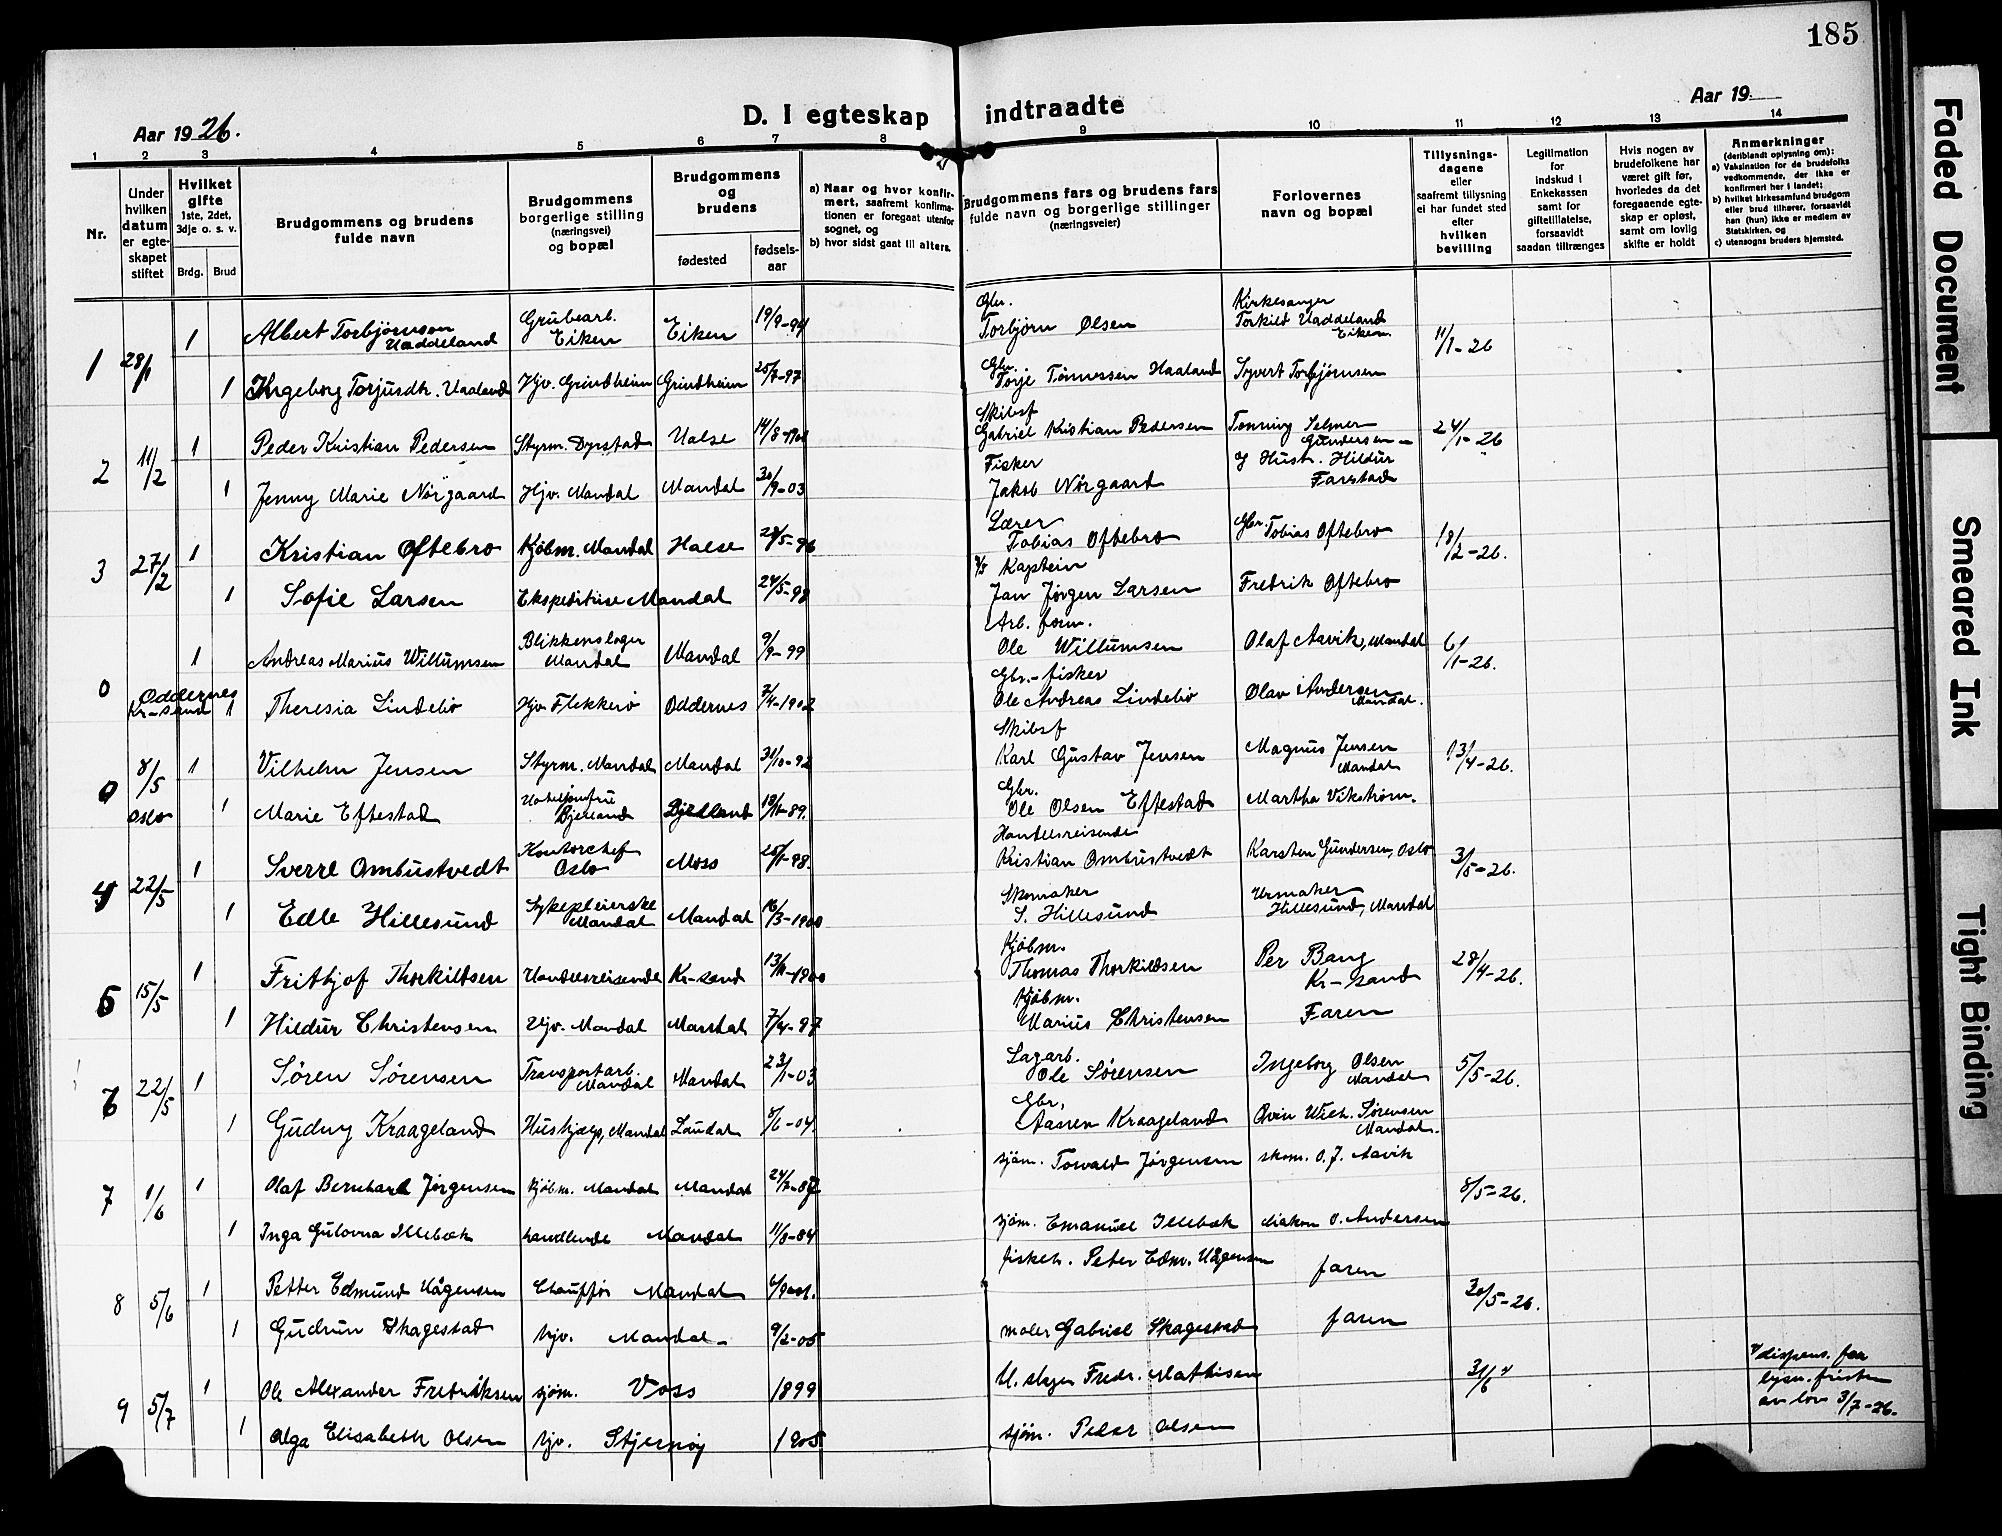 185
D. I egteskap indtraadte
Aar 1926.
Aar 19
1 2 3 4 5 6 7 8 9 10 11 12 13 14
Nr.
Under hvilken datum er egteskapet stiftet
Hvilket gifte
1ste, 2det, 3dje o. s. v.
Brdg. Brud
Brudgommens og brudens fulde navn
Brudgommens borgerlige stilling (næringsvei) og bopæl
Brudgommens og brudens
fødested
fødsels-aar
a) Naar og hvor konfirmert, saafremt konfirmationen er foregaat utenfor sognet, og
b) hvor sidst gaat til alters.
Brudgommens fars og brudens fars fulde navn og borgerlige stillinger (næringsveier)
Forlovernes navn og bopæl
Tillysnings-dagene eller saafremt tillysning ei har fundet sted efter hvilken bevilling
Legitimation for indskud i Enkekassen samt for giftetillatelse, forsaavidt saadan tiltrænges
Hvis nogen av brudefolkene har været gift før, hvorledes da det foregaaende egteskap er opløst, samt om lovlig skifte er holdt
Anmerkninger
(deriblandt oplysning om):
a) Vaksination for de brudefolks vedkommende, der ikke er konfirmert her i landet;
b) hvilket kirkesamfund brudgom eller brud tilhører, forsaavidt han (hun) ikke er medlem av Statskirken, og
c) utensogns bruders hjemsted.
1 28/1 1 Albert Torbjørnson Uaddeland Grubearb. Eiken Eiken 19/9-94 Gbr. Torbjørn Olsen Kirkesanger Torkild Uaddeland Eiken 11/1-26
1 Ingeborg Torjusdtr. Uaaland Hjv. Grindheim Grindheim 25/7-97 Gbr. Torje Tønnessen Haaland Syvert Torbjørnsen
2 11/2 1 Peder Kristian Pedersen Styrm. Dyrstad Halse 14/8-1901 Skibsf Gabriel Kristian Pedersen Tønning Selmer Gundersen 24/1-26
1 Jenny Marie Nørgaard Hjv. Mandal Mandal 30/9-03 Fisker Jakob Nørgaard Hust. Hildur Farstad
3 27/2 1 Kristian Oftebro Kjøbm. Mandal Halse 28/5-96 Lærer Tobias Oftebro Gbr. Tobias Oftebro 18/2-26.
1 Sofie Larsen Ekspeditrise Mandal 24/5-98 Kaptein Jan Jørgen Larsen Fredrik Oftebro
0 1 Andreas Marius Willumsen Blikkenslager Mandal Mandal 9/9-99 Arb. form. Ole Willumsen Olaf Aavik, Mandal 6/1-26.
Oddernes Kr-sand 1 Theresia Lindebø Hjv Flekkerø Oddernes 7/4-1902 Gbr.-fisker Ole Andreas Lindebø Olav Andersen Mandal.
0 8/5 1 Vilhelm Jensen Styrm. Mandal Mandal 31/10-92 Skibsf Karl Gustav Jensen Magnus Jensen Mandal 13/4-26.
Oslo 1 Marie Eftestad Hoteljomfru Bjelland Bjelland 19/11-89. Gbr. Ole Olsen Eftestad Martha Vikstrøm.
4 22/5 1 Sverre Ombustvedt Kontorchef Oslo Moss 25/1-98. Handelsreisende Kristian Ombustvedt Karsten Gundersen, Oslo 3/5-26.
1 Edle Hillesund Sykepleierske Mandal Mandal 16/3-1900 Skomaker S. Hillesund Urmaker Hillesund, Mandal
5 15/5 1 Frithjof Thorkildsen Handelsreisende Kr-sand 13/11-1900 Kjøbm. Thomas Thorkildsen Per Bang Kr-sand 28/4-26.
1 Hildur Christensen Hjv. Mandal Mandal 7/4-97 Kjøbm. Marius Christensen Faren
6 22/5 1 Søren Sørensen Transportarb. Mandal Mandal 23/1-03 Sagarb. Ole Sørensen Ingeborg Olsen Mandal 5/5-26.
1 Gudny Kraageland Hushjælp, Mandal Laudal 8/6-04. Gbr, Aanen Kraageland Wich. Sørensen Mandal.
7 1/6 1 Olaf Bernhard Jørgensen kjøbm. Mandal Mandal 24/7-87 sjøm. Torvald Jørgensen skom. O. J. Aavik 8/5-26.
1 Inga Gulovna Illebæk handlende Mandal 11/8-84 sjøm. Emanuel Illebæk diakon O. Andersen
8 5/6 1 Petter Edmund Uågensen Chauffør Mandal fisker. Peter Edm. Uågensen faren 20/5-26.
1 Gudrun Skagestad hjv. Mandal 9/2-05 maler Gabriel Skagestad faren
9 5/7 1 Ole Alexander Fredriksen sjøm. Voss 1899 Fredr. Mathisen 31/6 dispens. fra lysn. fristen av lov 3/7-26.
1 Olga Elisabeth Olsen hjv. Stjernøy 1905 sjøm. Peder Olsen
Faded Document
Smeared Ink
Tight Binding